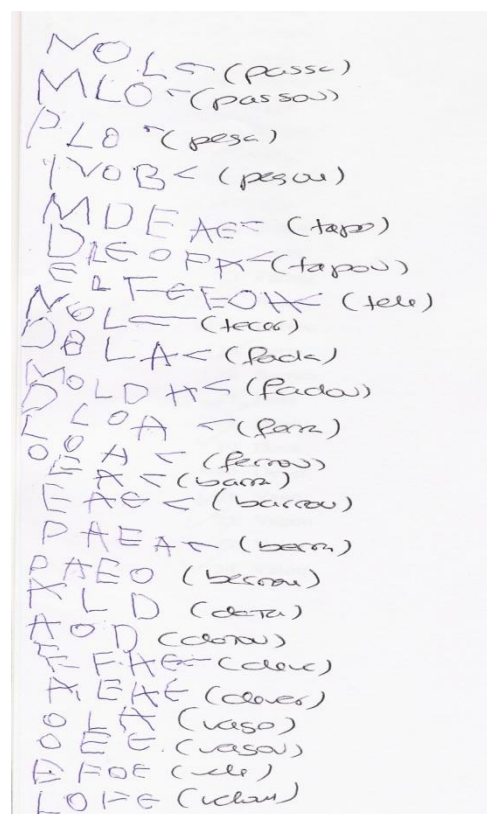 NOL< (passa)
MLO (passou)
PLO (pesa)
IVOB< (pesou)
MDEAE< (tapo)
DLEOPA< (tapou)
(tele)
NOL (tecer)
OBLA< (fada)
MOLDA< (fadou)
LLOA (ferra)
OOA< (ferrou)
EA< (barra)
EAE< (barrou)
PAEA (berra)
PAEO (berrou)
ALD (data)
AOD (datou)
(deve)
AEAE (dever)
OLA (vaso)
OEE (vasou)
EFOE (vele)
LOFE (velou)